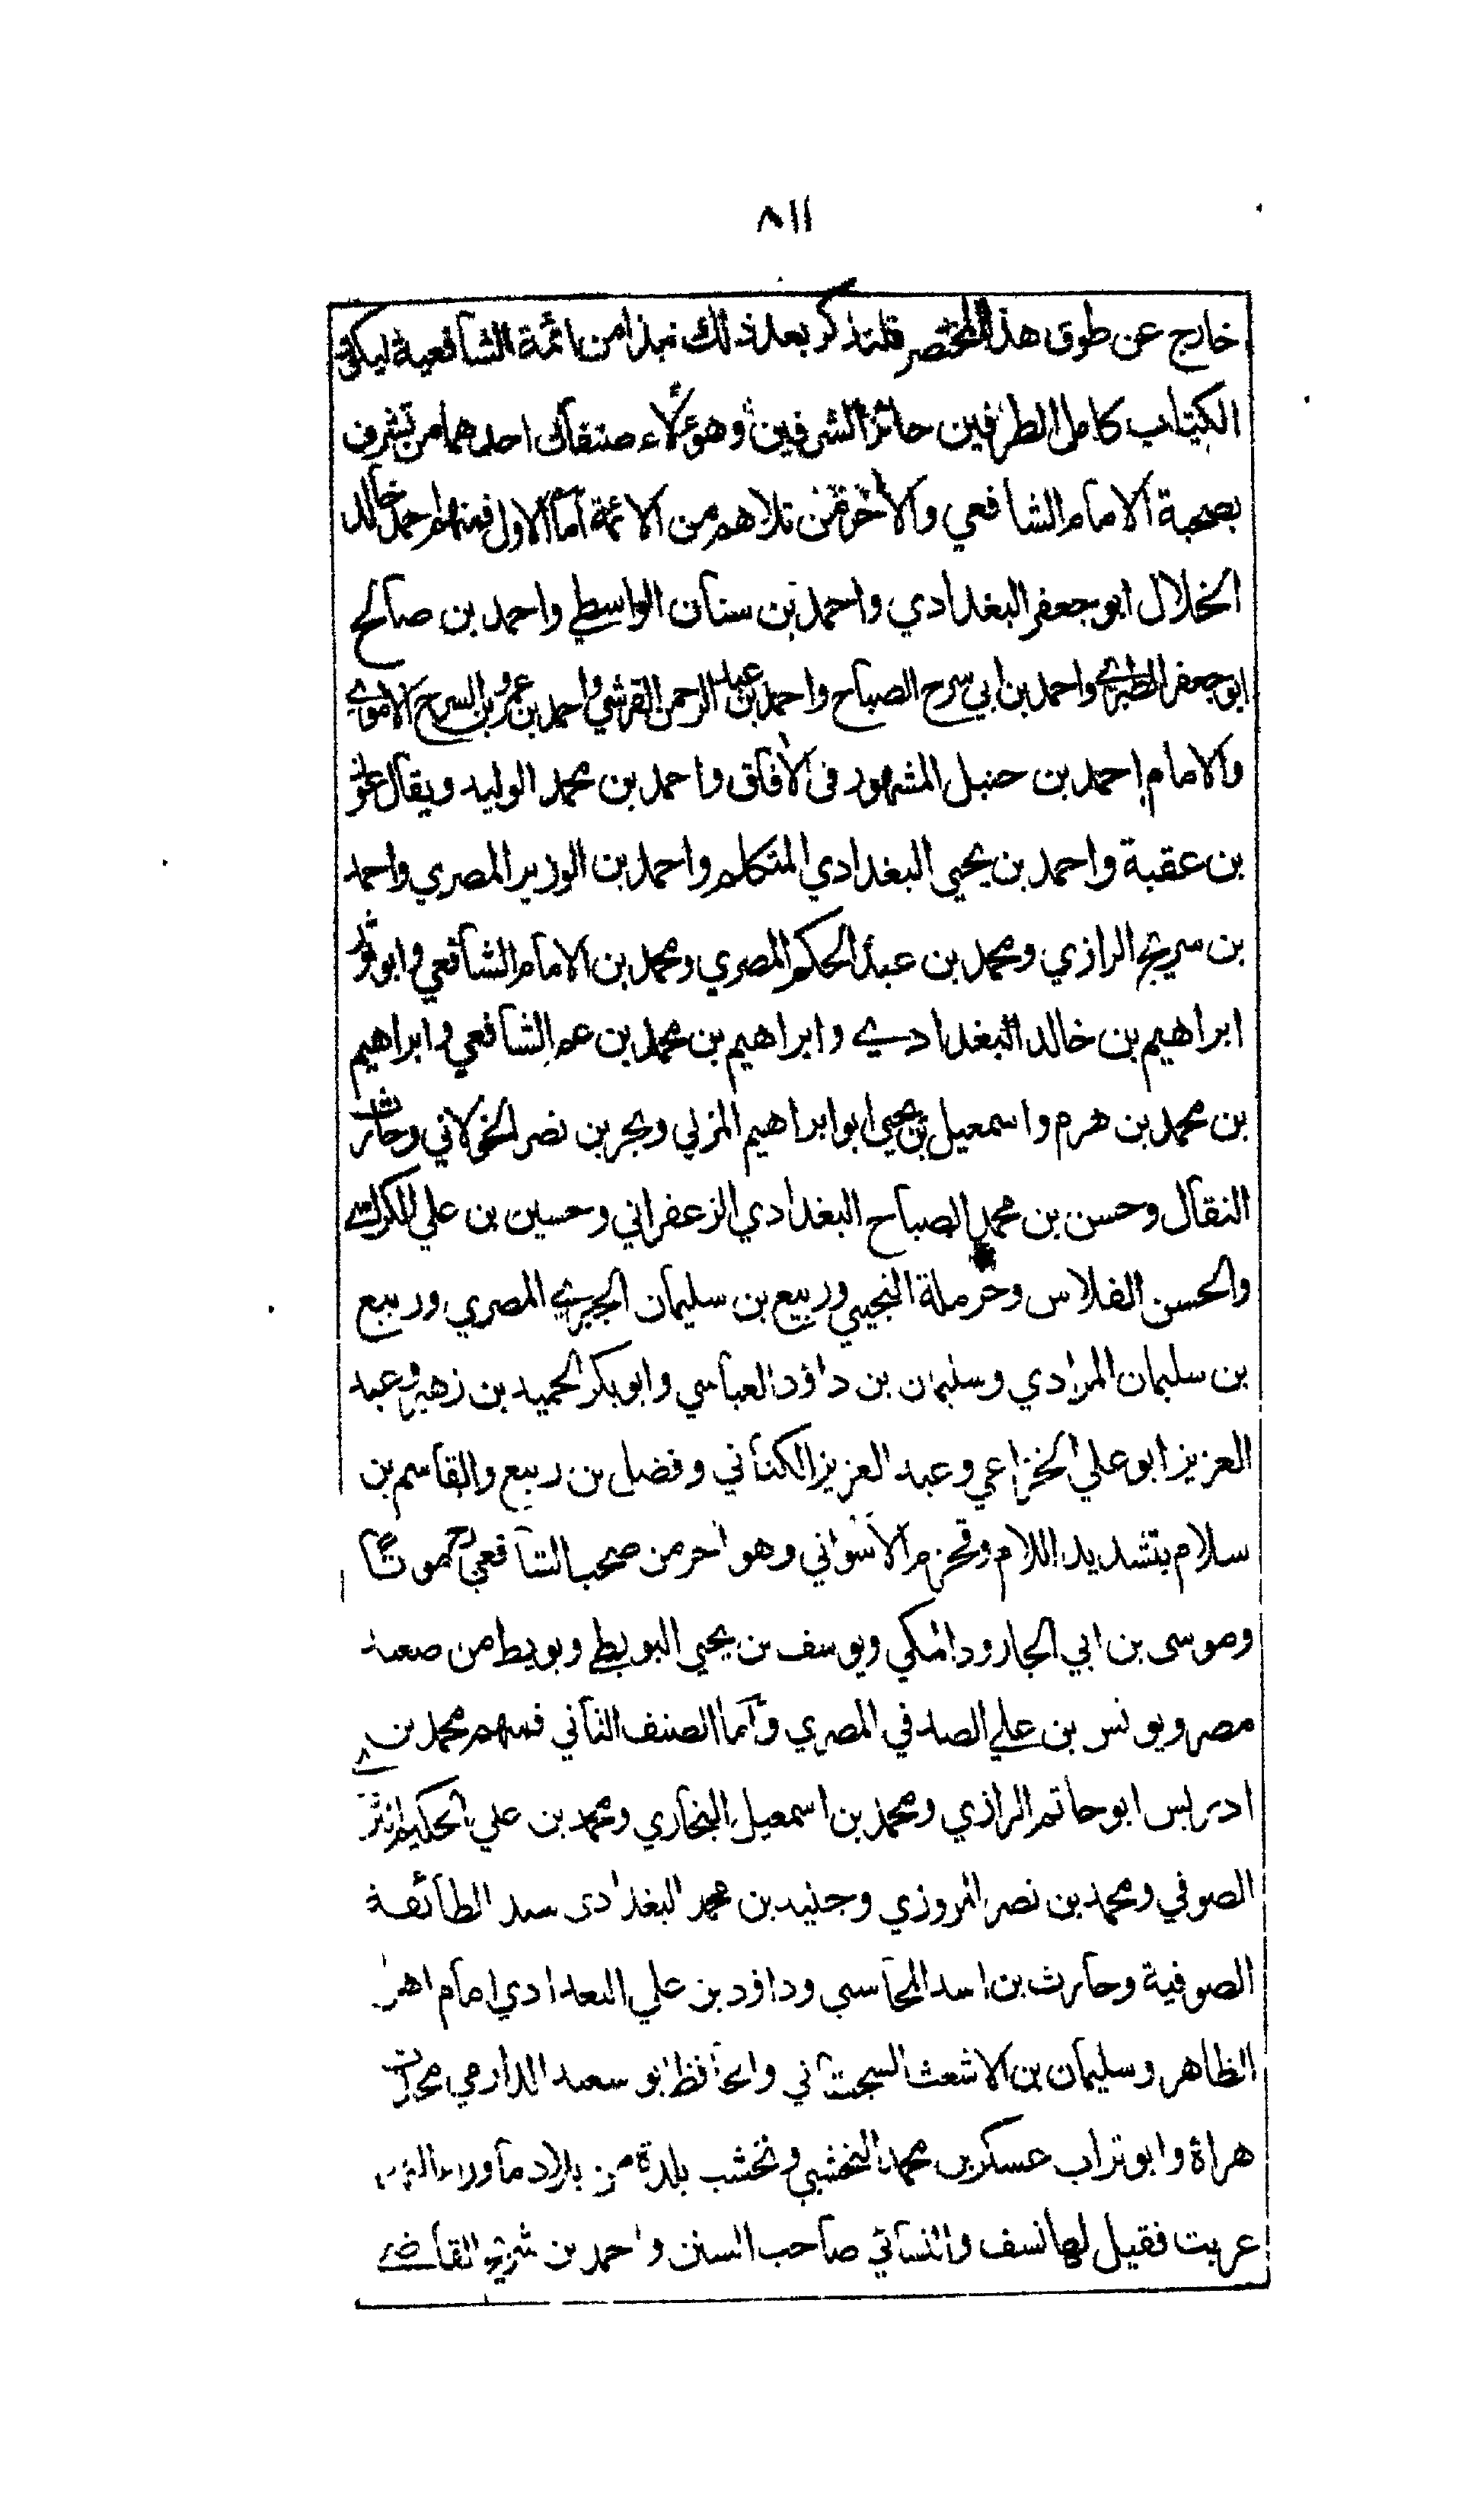 ٨١١
خارج عن طوق هذا المختصر فلنذكر بعد ذلك نبذا من ائمة الشافعية ليكون
الكتاب كامل الطرفين حائز الشرفين وهؤلاء صنفان احدهما من تشرف
بصحبة الامام الشافعي والآخر من تلاهم من الائمة اما الاول فمنهم احمد خالد
الخلال ابو جعفر البغدادي واحمد بن سنان الواسطي واحمد بن صالح
ابو جعفر الطبري واحمد بن ابي سرح الصباح واحمد بن عبد الرحمن القرشي واحمد بن عمرو بن السرح الاموي
والامام احمد بن حنبل المشهور في الآفاق واحمد بن محمد الوليد ويقال
بن عقبة واحمد بن يحيى البغدادي المتكلم واحمد بن الوزير المصري واحمد
بن سريج الرازي ومحمد بن عبد الحكم المصري ومحمد بن الامام الشافعي وابو ثور
ابراهيم بن خالد البغدادي وابراهيم بن محمد بن عم الشافعي وابراهيم
بن محمد بن هرم واسمعيل بن يحيى ابو ابراهيم المزني وبحر بن نصر الخولاني وحارث
النقال وحسن بن محمد الصباح البغدادي الزعفراني وحسين بن علي
والحسن الفلاس وحرملة التجيبي وربيع بن سليمان الجيزي المصري وربيع
بن سليمان المرادي وسليمان بن داؤد العباسي وابو بكر الحميد بن زهير وعبد
العزيز ابو علي الخزاعي وعبد العزيز الكناني وفضل بن ربيع والقاسم بن
سلام بتشديد اللام وقحزم الاسواني وهو آخر من صحب الشافعي موتا
وموسى بن ابي الجارود المكي ويوسف بن يحيى البويطي وبويط من صعيد
مصر ويونس بن علي الصدفي المصري واما الصنف الثاني فمنهم محمد بن
ادريس ابو حاتم الرازي ومحمد بن اسمعيل البخاري ومحمد بن علي الحكيم
الصوفي ومحمد بن نصر المروزي وجنيد بن محمد البغدادي سيد الطائفة
الصوفية وحارث بن اسد المحاسبي وداؤد بن علي البغدادي امام اهل
الظاهر وسليمان بن الاشعث السجستاني والحافظ ابو سعيد الدارمي محدث
هراة وابو تراب عسكر بن محمد النخشبي ونخشب بلدة من بلاد ما وراء النهر
عربت فقيل لها نسف والنسائي صاحب السنن واحمد بن شريح القاضي